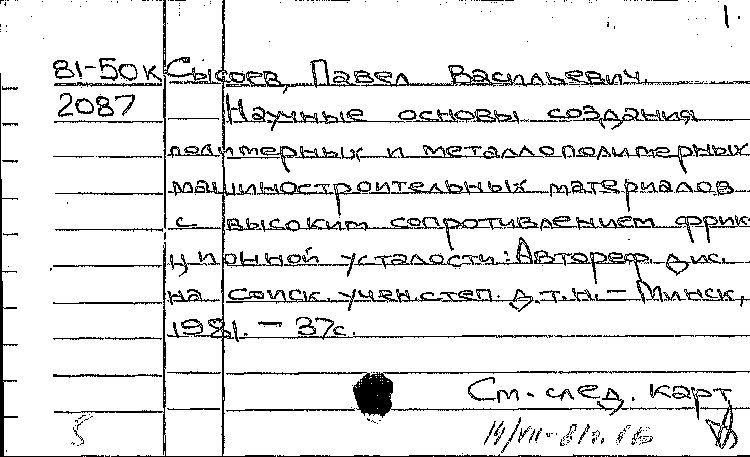 1.
81-50к Сысоев, Павел Васильевич.
2087 Научные основы создания
полимерных и металлополимерных
машиностроительных материалов
с высоким сопротивлением фрик-
ционной усталости: Автореф. дис.
на соиск. учен. степ. д.т.н. – Минск,
1981. – 37с.
См. след. карт
14/VII-81г.